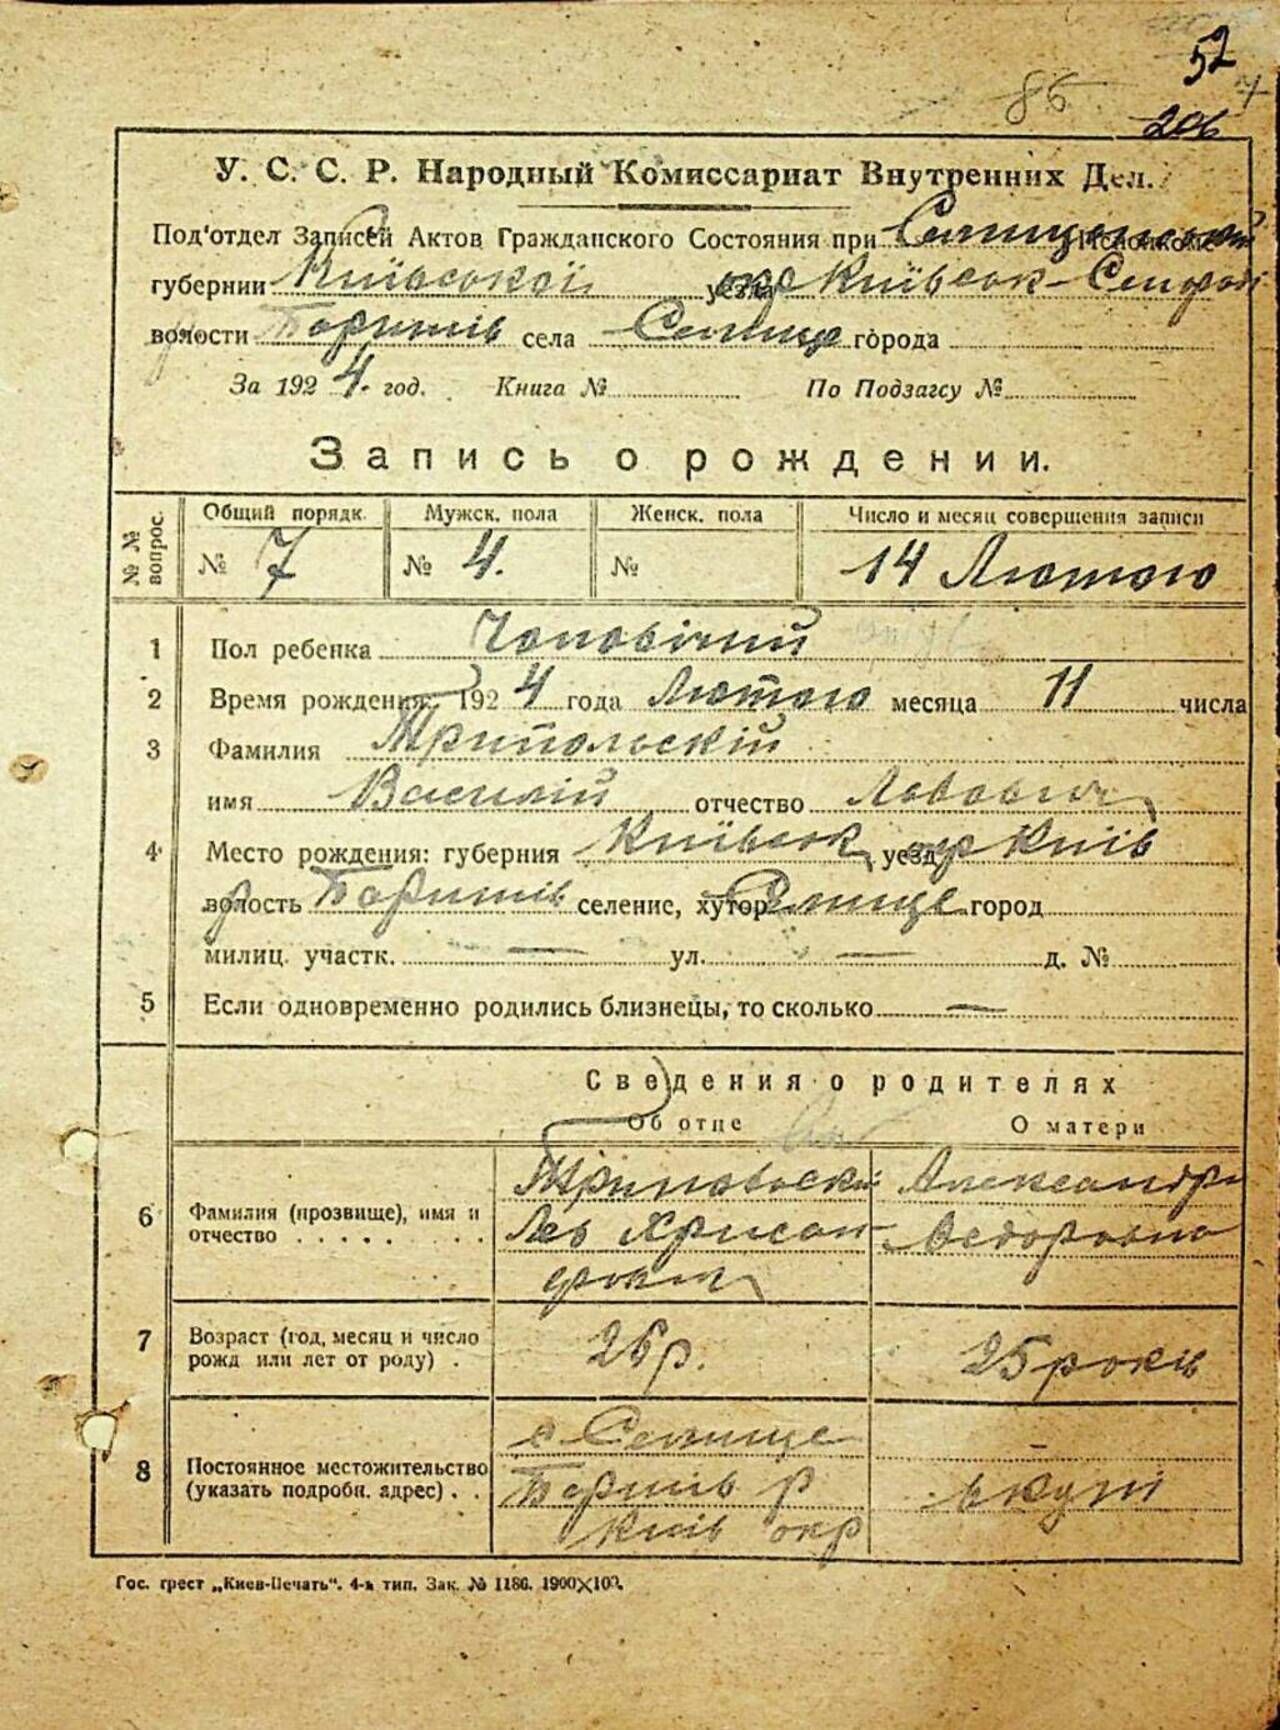 52
85
206
У. С. С. Р. Народный Комиссариат Внутренних Дел.
Под'отдел Записей Актов Гражданского Состояния при Селищенськім Исполкоме
губернии Київської уезда окр Київськ-
волости Баришів села Селище города
За 1924. год. Книга № По Подзагсу №
Запись о рождении.
№ № вопрос. Общий порядк. Мужск. пола Женск. пола Число и месяц совершения записи
№ 7 № 4. № 14 Лютого
1 Пол ребенка Чоловічий
2 Время рождения: 1924 года Лютого месяца 11 числа
3 Фамилия Трипольскій
имя Василій отчество Львович
4 Место рождения: губерния Київськ уезд окр Київ
волость р Баришів селение, хутор Селище город
милиц. участк. — ул. — д. №
5 Если одновременно родились близнецы, то сколько —
Сведения о родителях
Об отце О матери
6 Фамилия (прозвище), имя и отчество . . . . . . . .
Трипольскі Александра
Лев Хрисан Федоровна
фович
7 Возраст (год, месяц и число рожд или лет от роду) . 26 р. 25 років
8 Постоянное местожительство (указать подробн. адрес) . .
с. Селище —
Баришів р вкупі
Київ окр
Гос. трест „Киев-Печать“. 4-я тип. Зак. № 1186. 1900×100.